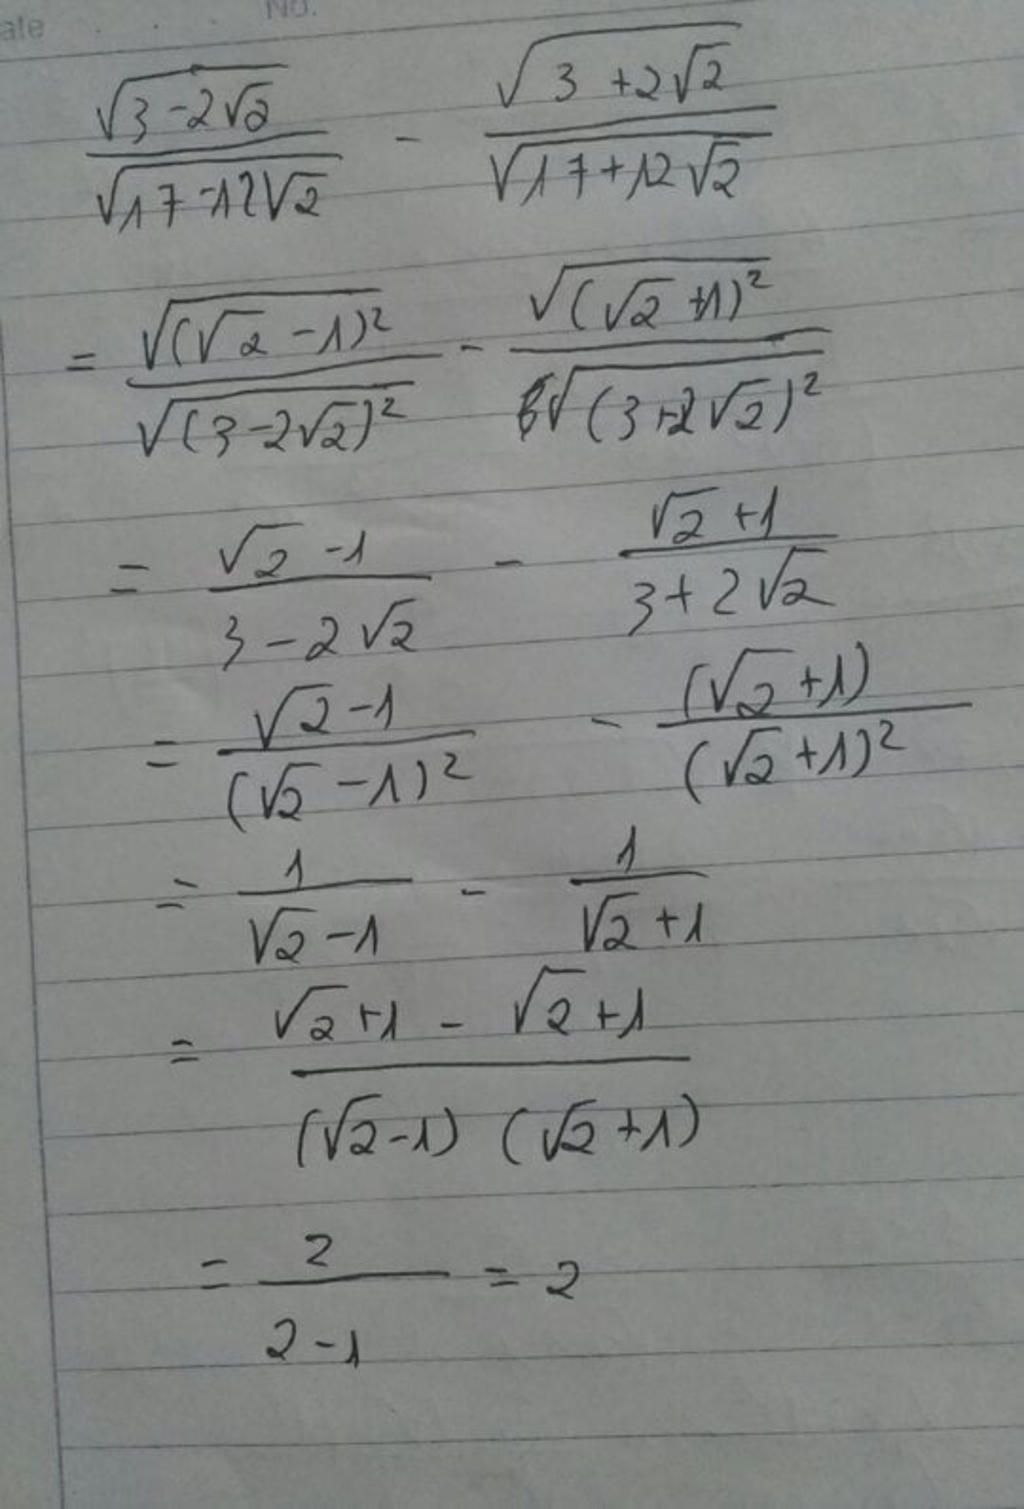 ate No.
√(3-2√2)/√(17-12√2) - √(3+2√2)/√(17+12√2)
= √((√2-1)²)/√((3-2√2)²) - √((√2+1)²)/√((3+2√2)²)
= (√2-1)/(3-2√2) - (√2+1)/(3+2√2)
= (√2-1)/(√2-1)² - (√2+1)/(√2+1)²
= 1/(√2-1) - 1/(√2+1)
= (√2+1-√2+1)/((√2-1)(√2+1))
= 2/(2-1) = 2